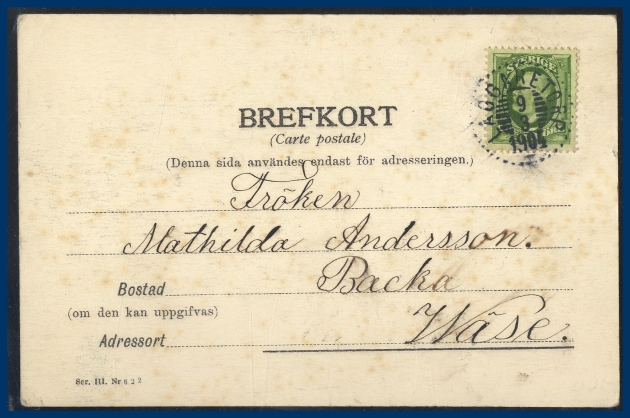 SVERIGE
9
3
1904
BREFKORT
(Carte postale)
(Denna sida användes endast för adresseringen.)
Fröken
Mathilda Andersson.
Bostad Backa
(om den kan uppgifvas)
Adressort Wäse.
Ser. III. Nr 622